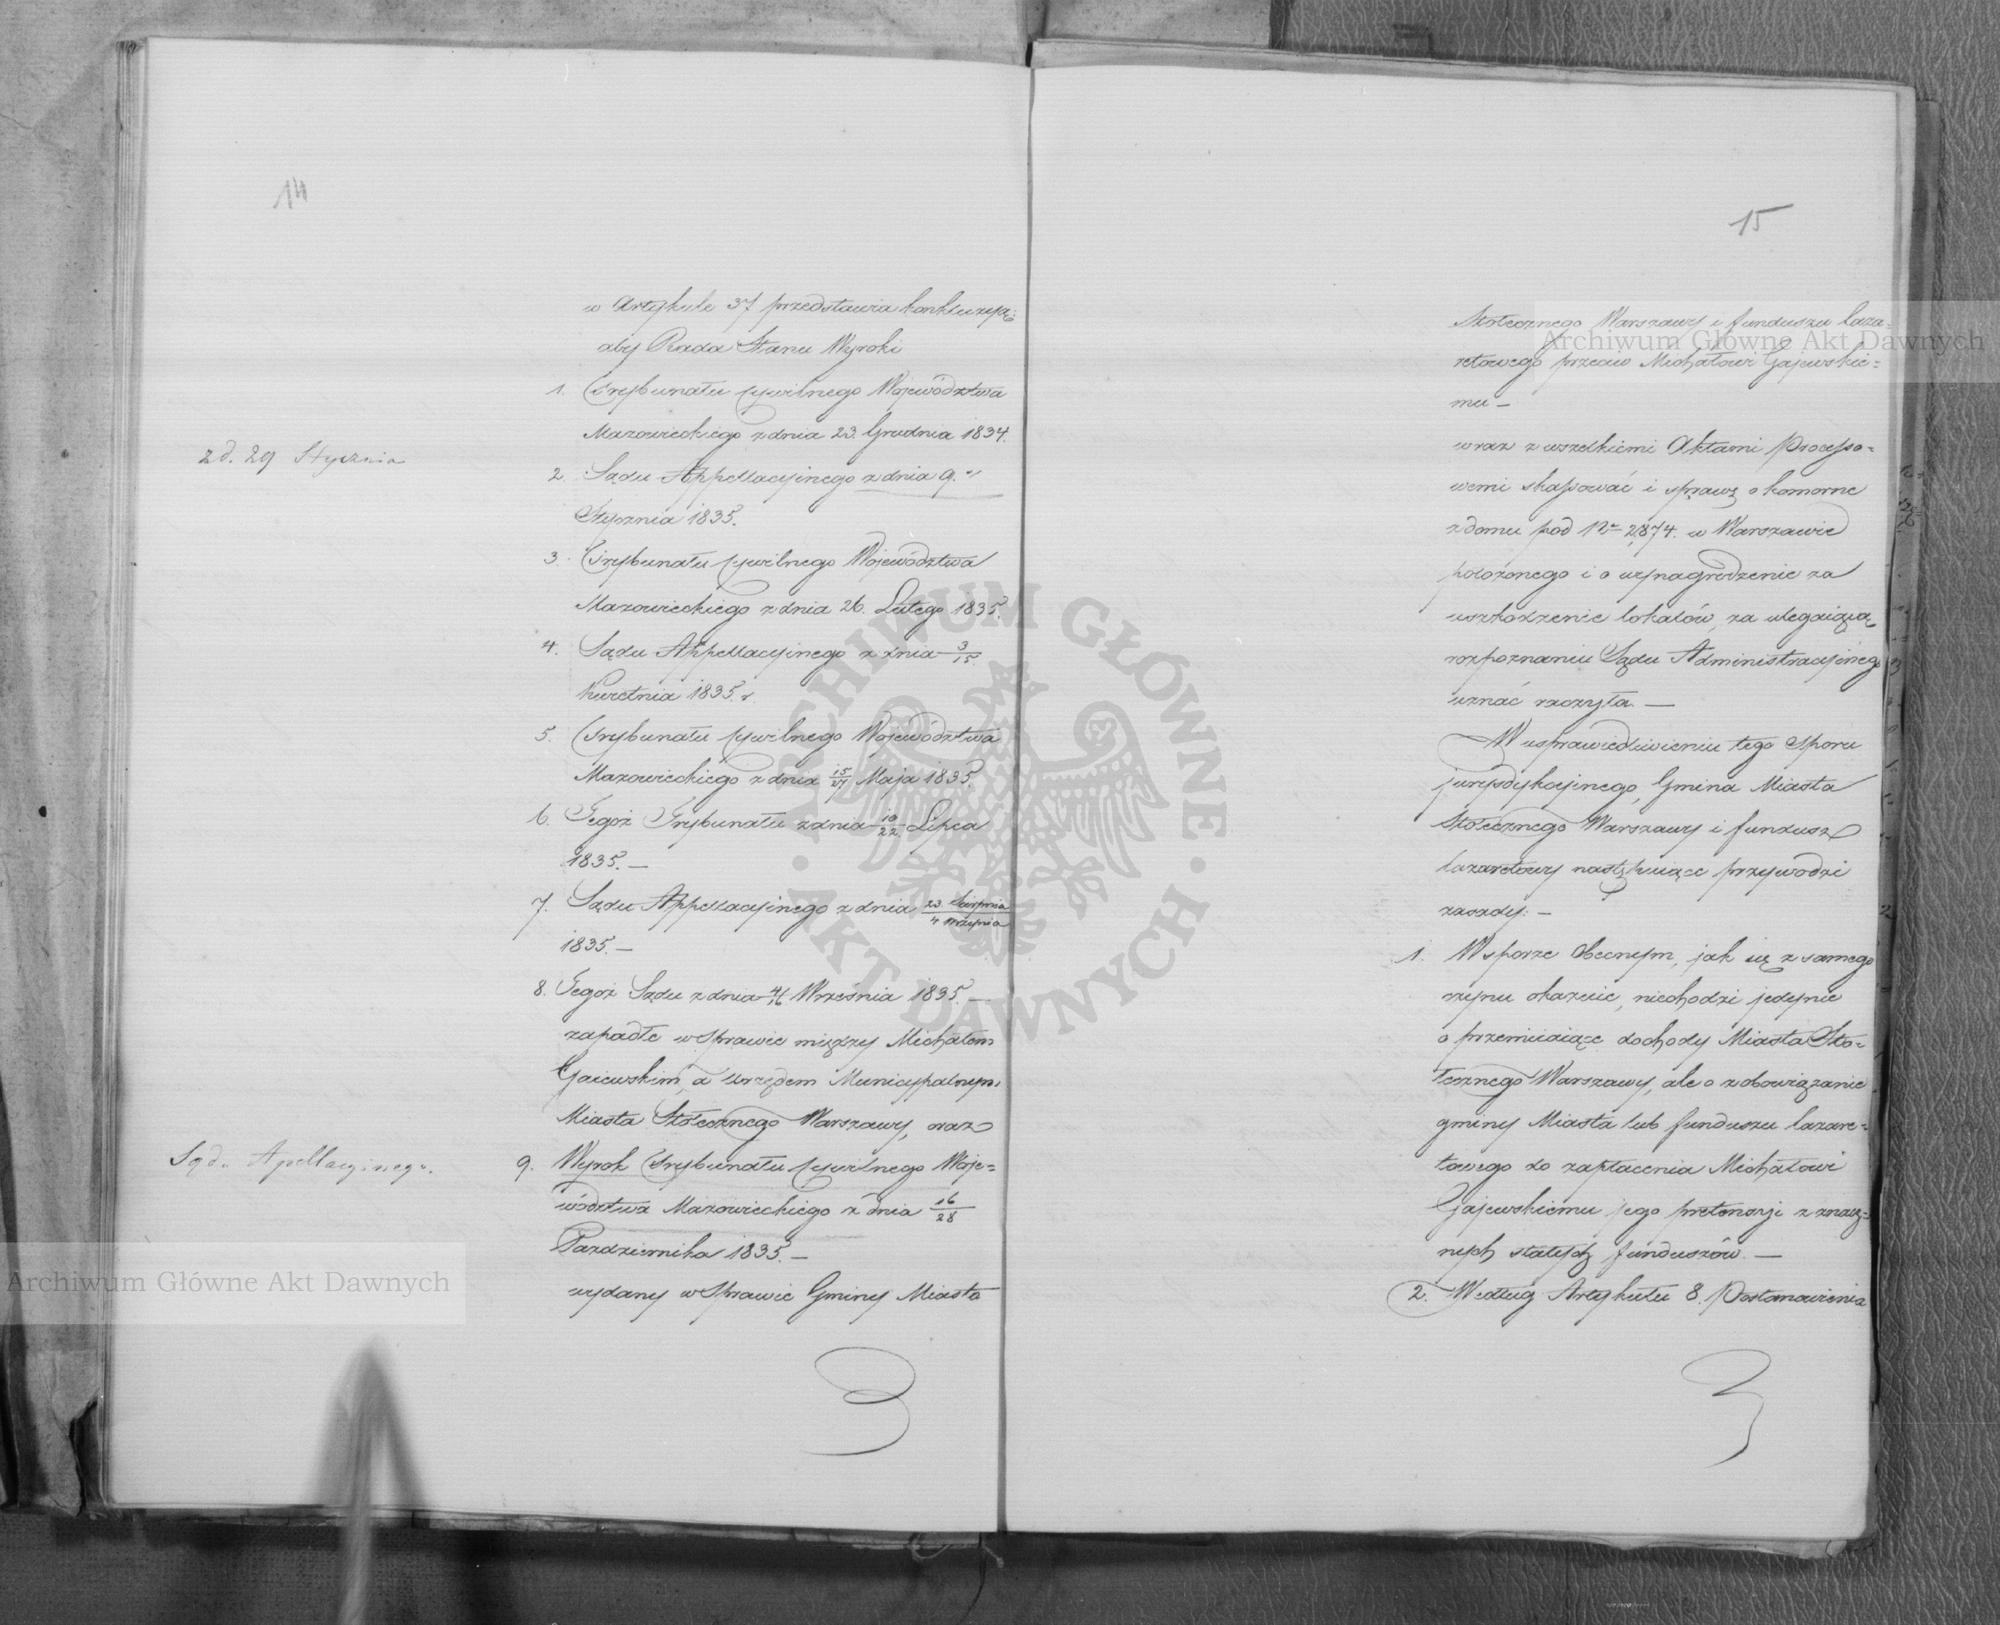 14
w Artykule 37 przedstawia konkluzyą:
aby Rada Stanu Wyroki
1. Trybunału Cywilnego Województwa
Mazowieckiego z dnia 23. Grudnia 1834.
zd. 29 Stycznia
2. Sądu Appellacyinego z dnia 9.
Stycznia 1835.
3. Trybunału Cywilnego Województwa
Mazowieckiego z dnia 26. Lutego 1835.
4. Sądu Appellacyinego z dnia 3/15.
Kwietnia 1835. r.
5. Trybunału Cywilnego Województwa
Mazowieckiego z dnia 15/27 Maja 1835.
6. Tegoż Trybunału z dnia 10/22. Lipca
1835. —
7. Sądu Appellacyinego z dnia 23 Sierpnia/4 Września
1835. —
8. Tegoż Sądu z dnia 4/16 Września 1835. —
zapadłe w Sprawie między Michałem
Gaiewskim, a Urzędem Municypalnym
Miasta Stołecznego Warszawy, oraz
Sądu Apellacyinego.
9. Wyrok Trybunału Cywilnego Woje=
wództwa Mazowieckiego z dnia 16/28
Października 1835. —
wydany w Sprawie Gminy Miasta
15
Stołecznego Warszawy i funduszu laza=
retowego przeciw Michałowi Gajewskie=
mu —
wraz z wszelkiemi Aktami Processo=
wemi skassować i sprawę o komorne
z domu pod Nr 2,874. w Warszawie
położonego i o wynagrodzenie za
uszkodzenie lokalów, za ulegaiącą
rozpoznaniu Sądu Administracyinego
uznać raczyła. —
W usprawiedliwieniu tego Sporu
jurysdykcyinego, Gmina Miasta
Stołecznego Warszawy i fundusz
lazaretowy następuiące przywodzi
zasady: —
1. W sporze obecnym, jak się z samego
czynu okazuie, niechodzi jedynie
o przemiiaiące dochody Miasta Sto=
łecznego Warszawy, ale o zobowiązanie
gminy Miasta lub funduszu lazare=
towego do zapłacenia Michałowi
Gajewskiemu jego pretensyi z znacz=
nych stałych funduszów. —
2. Według Artykułu 8. Postanowienia
Archiwum Główne Akt Dawnych
Archiwum Główne Akt Dawnych
ARCHIWUM GŁÓWNE · AKT DAWNYCH ·